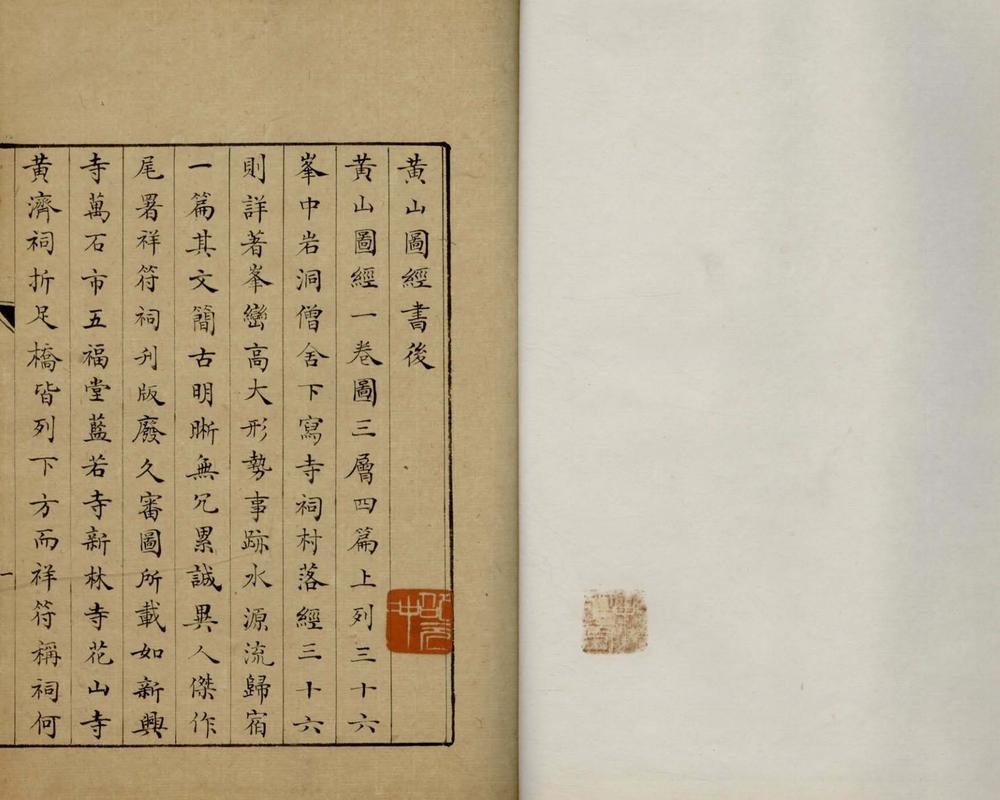 黄山圖經書後
黄山圖經一卷圖三層四篇上列三十六
峯中岩洞僧舍下寫寺祠村落經三十六
則詳著峯巒高大形勢事跡水源流歸宿
一篇其文簡古明晰無冗累誠異人傑作
尾署祥符祠刋版廢久審圖所載如新興
寺萬石市五福堂藍若寺新林寺花山寺
黄濟祠折足橋皆列下方而祥符稱祠何
一